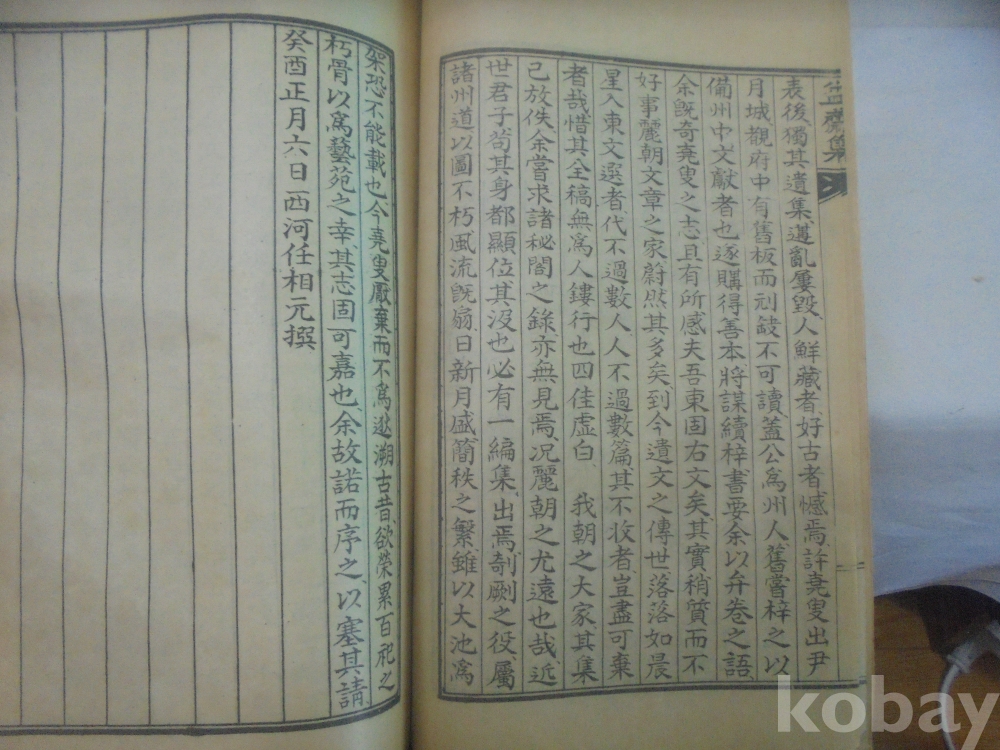 表後獨其遺集遘亂屢毀人鮮藏者好古者憾焉許堯叟出尹
月城觀府中有舊板而刓缺不可讀蓋公爲州人舊嘗梓之以
備州中文獻者也逐購得善本將謀續梓書要余以弁卷之語
余旣奇堯叟之志且有所感夫吾東固右文矣其實稍質而不
好事麗朝文章之家蔚然其多矣到今遺文之傳世落落如晨
星入東文選者代不過數人人不過數篇其不收者豈盡可棄
者哉惜其全稿無爲人鏤行也四佳虛白 我朝之大家其集
己放佚余當求諸秘閣之錄亦無見焉况麗朝之尤遠也哉近
世君子苟其身都顯位其沒也必有一編集出焉剞劂之役屬
諸州道以圖不朽風流旣扇日新月盛簡秩之繁雖以大池爲
架恐不能載也今堯叟厭棄而不爲逖溯古昔欲榮累百祀之
朽骨以爲藝苑之幸其志固可嘉也余故諾而序之以塞其請
癸酉正月六日西河任相元撰
齋集
kobay